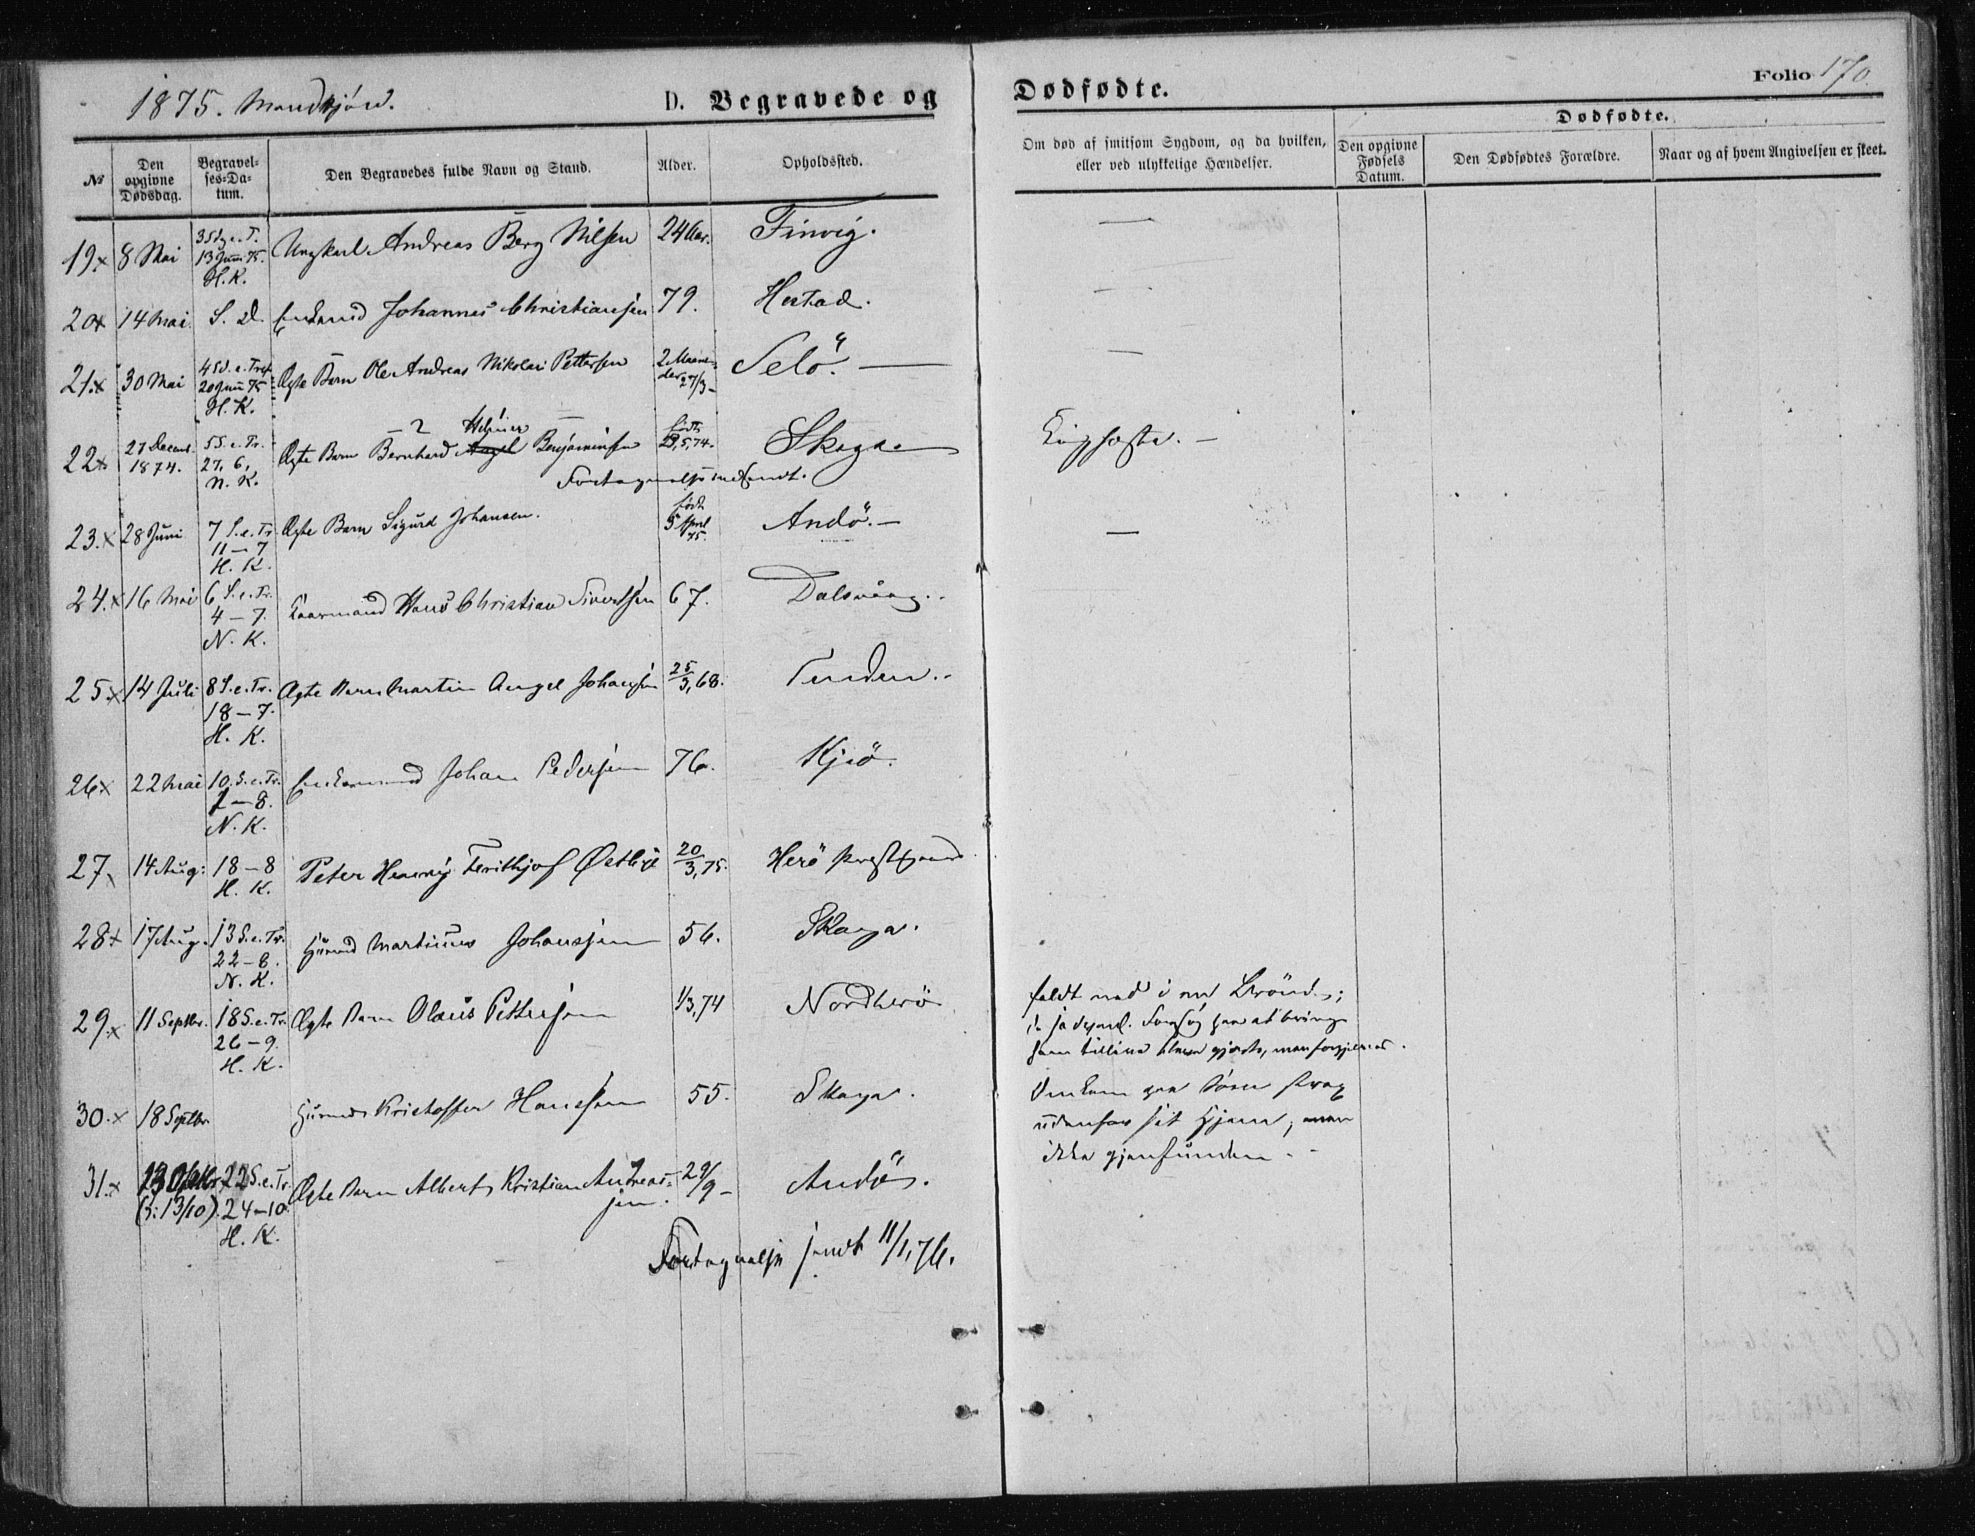 1875. Mandkjön. D. Begravede og Dødfødte. Folio 170.
№ Den opgivne Dødsdag. Begravelses-Datum. Den Begravedes fulde Navn og Stand. Alder. Opholdssted. Om død af smitsom Sygdom, og da hvilken, eller ved ulykkelige Hændelser. Dødfødte.
Den opgivne Fødsels Datum. Den Dødfødtes Forældre. Naar og af hvem Angivelsen er skeet.
19.x 8 Mai 3 Sdg. e. T. Ungkarl Andreas Berg Nilsen 24 Aar. Finvig. —
13 Juni 75.
H. K.
20x 14 Mai S. D. Johannes Christiansen 79. Hestad. —
21.x 30 Mai 4 Sd. e. Tref. Ægte Barn Ole Andreas Nikolai Pettersen 2 Maaneder 27/3 Selö. — —
20 Juni 75
H. K.
22x 27 Decemb. 1874. 5 S. e. Tr. Ægte Barn Bernhard Angel Benjaminsen født 5, 74. Kighoste. —
27, 6,
N. K.
23.x 28 Juni 7 S. e. Tr. Ægte Barn Sigurd Johansen. født 5 April 75. Andö. — —
11 — 7
H. K.
24.x 16 Mai 6 S. e. Tr. Kaarmand Hans Christian Sivertsen 67. Dalsvaag.
4 — 7.
N. K.
25.x 14 Juli 8 S. e. Tr. Ægte Barn Martin Angel Johansen 25/3, 68. Tenden.
18 — 7.
H. K.
26x 22 Mai 10. S. e. Tr. Enkemand Johan Pedersen 76. Kjiö.
1 — 8.
N. K.
27. 14 Aug: 18 — 8 Peter Henrÿ Ferithjof Østbÿe 20/3, 75. Herö Prestgaard
H. K.
28x 17 Aug. 13 S. e. Tr. Martinus Johanssen 56. Skaga.
22 — 8.
N. K.
29.x 11 Septbr. 18 S. e. Tr. Ægte Barn Olaus Pettersen 1/3, 74 Nordherö faldt ned i en Brönd;
26 — 9.
H. K.
30.x 18 Septbr. Kristoffer Hanssen 55. Skaga. Omkom paa Söen strax
udenfor sit Hjem, men
ikke gjenfunden.
31.x 13 Oktbr. 22 S. e. Tr. Ægte Barn Albert Kristian Andreassen. 29/9 — Andö.
(3: 13/10). 24 — 10.
H. K.
Fortegnelse sendt 11/1, 76.